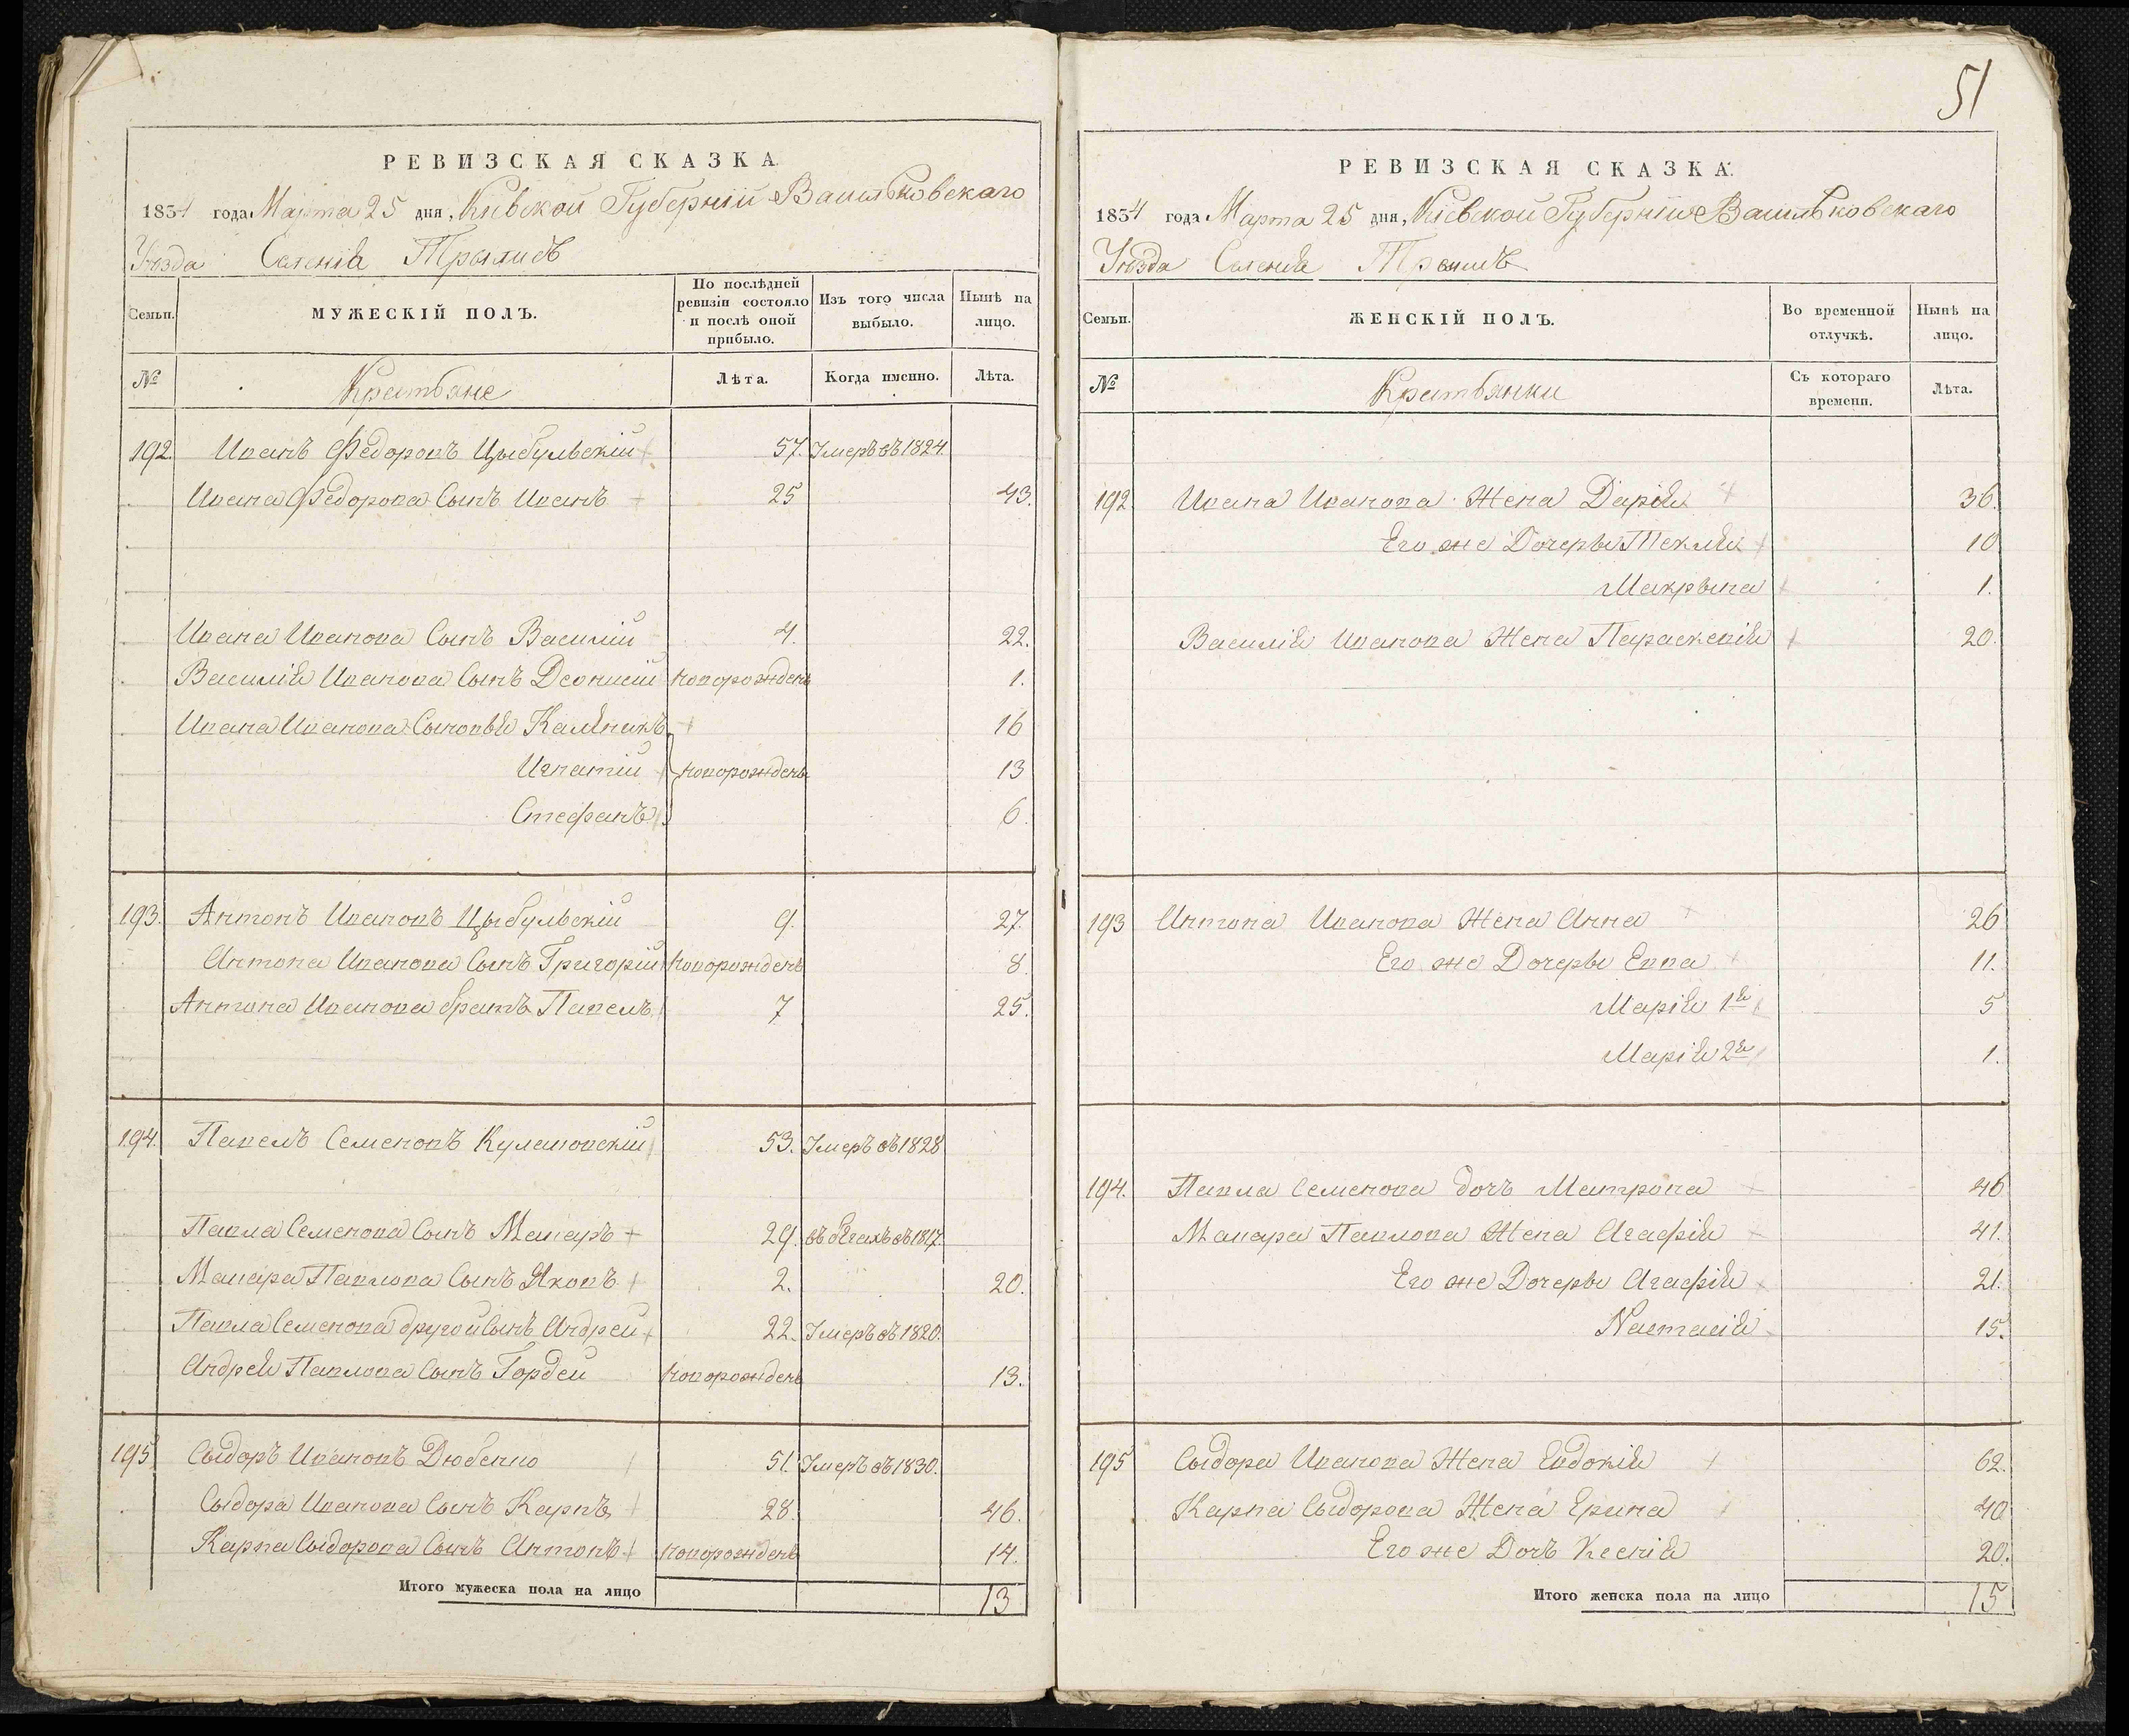 РЕВИЗСКАЯ СКАЗКА.
1834 года Марта 25 дня, Кіевской Губерніи Васильковскаго
Уѣзда Селенія Трылисъ
Семьи.
МУЖЕСКІЙ ПОЛЪ.
По послѣдней ревизіи состояло и послѣ оной прибыло.
Изъ того числа выбыло.
Нынѣ на лицо.
№
Крестьяне
Лѣта.
Когда именно.
Лѣта.
192. Иванъ Федоровъ Цыбульскій 57. Умеръ въ 1824.
Ивана Федорова Сынъ Иванъ 25 43.
Ивана Иванова Сынъ Василій 4. 22.
Василія Иванова Сынъ Деонисій новорожденъ 1.
Ивана Иванова Сыновья Калѣникъ 16
Игнатій новорожденъ 13
Стефанъ 6.
193. Антонъ Ивановъ Цыбульскій 9. 27.
Антона Иванова Сынъ Григорій новорожденъ 8.
Антона Иванова братъ Павелъ 7 25.
194. Павелъ Семеновъ 53. Умеръ въ 1828
Павла Семенова Сынъ Макаръ 29. въ бегахъ въ 1817.
Макара Павлова Сынъ Яковъ 2. 20.
Павла Семенова другой Сынъ Андрей 22. Умеръ въ 1820.
Андрея Павлова Сынъ Гордей новорожденъ 13.
195 Сыдоръ Ивановъ 51. Умеръ въ 1830.
Сыдора Иванова Сынъ Карпъ 28. 46.
Карпа Сыдорова Сынъ Антонъ новорожденъ 14.
Итого мужеска пола на лицо 13
51
РЕВИЗСКАЯ СКАЗКА.
1834 года Марта 25 дня, Кіевской Губерніи Васильковскаго
Уѣзда Селенія Трылисъ
Семьи.
ЖЕНСКІЙ ПОЛЪ.
Во временной отлучкѣ.
Нынѣ на лицо.
№
Крестьянки
Съ котораго времени.
Лѣта.
192. Ивана Иванова Жена Дарія 36.
Его же Дочеры Текля 10
Макрына 1.
Василія Иванова Жена Параскевія 20.
193 Антона Иванова Жена Анна 26
Его же Дочеры Евва 11.
Марія 1я 5
Марія 2я 1.
194. Павла Семенова дочъ Матрона 46
Макара Павлова Жена Агафія 41.
Его же Дочеры Агафія 21.
Настасія 15.
195 Сыдора Иванова Жена Евдокія 62.
Карпа Сыдорова Жена Ерина 40
Его же Дочъ Ксенія 20.
Итого женска пола на лицо 15